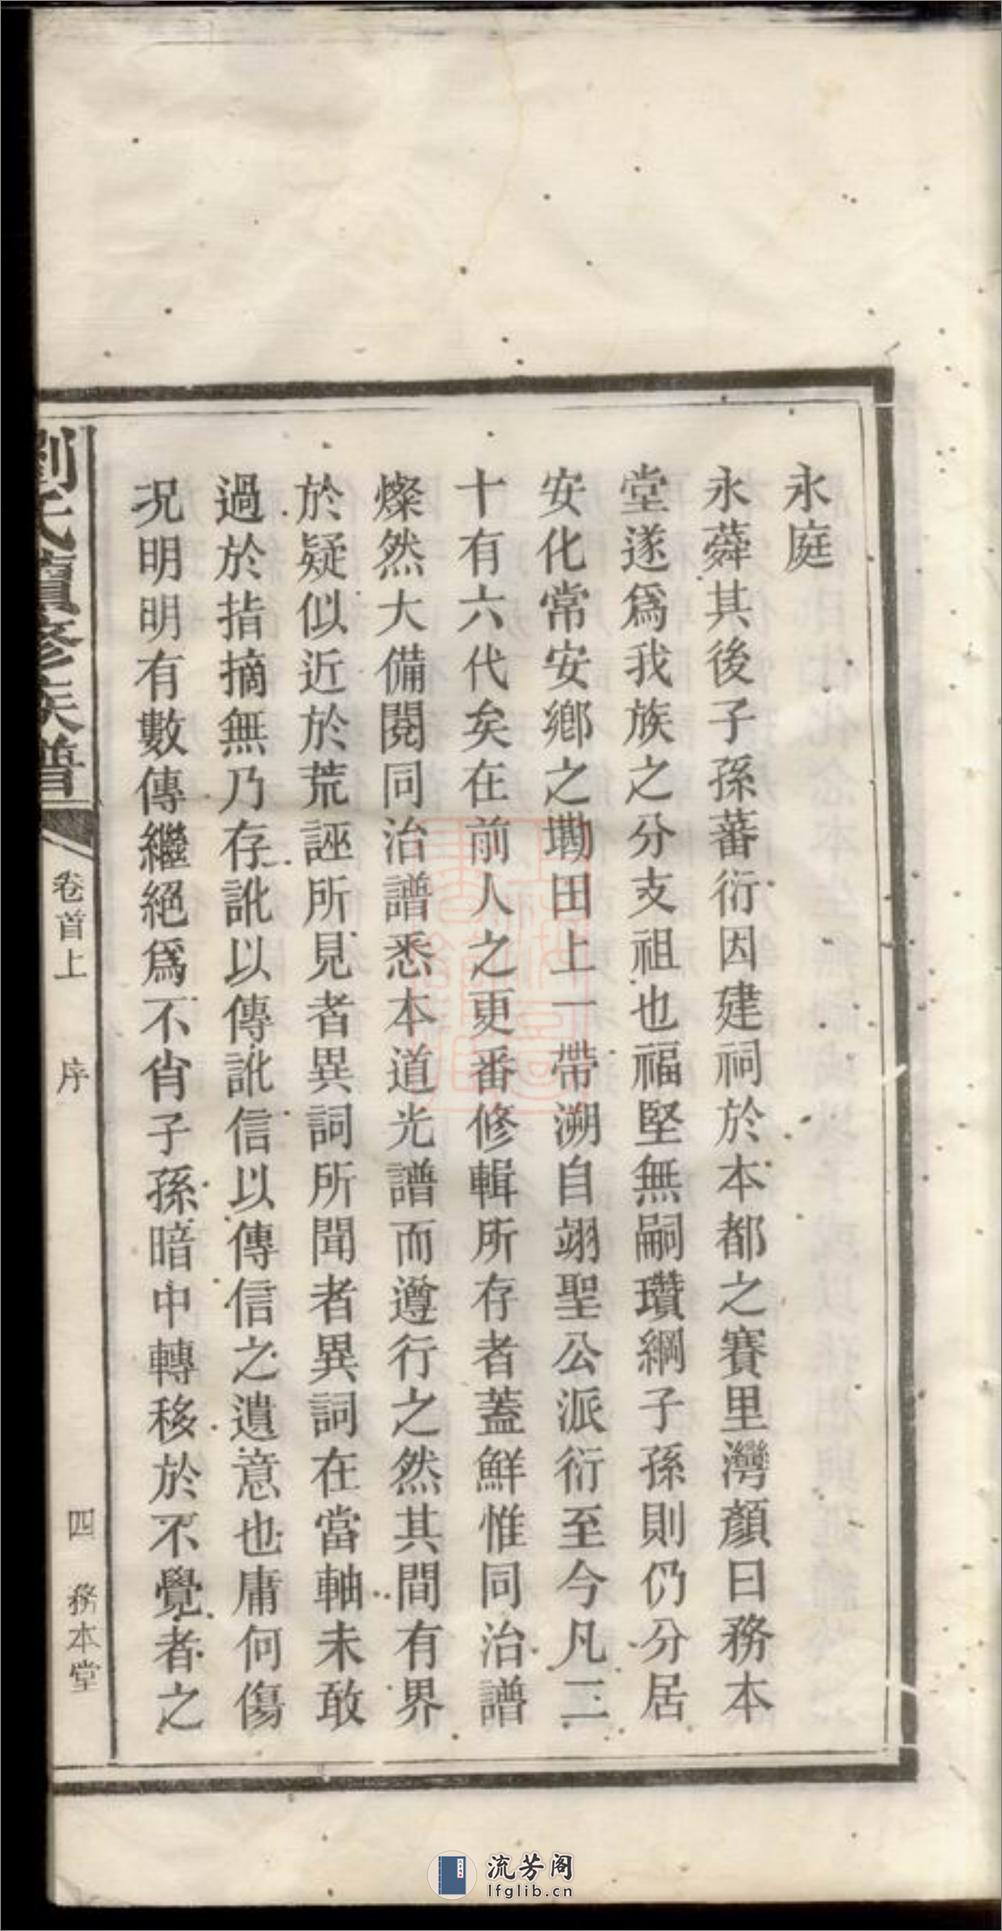 永庭
永蕣其後子孫蕃衍因建祠於本都之賽里灣顏曰務本
堂遂爲我族之分支祖也福堅無嗣瓚綱子孫則仍分居
安化常安鄉之墈田上一帶溯自翊聖公派衍至今凡二
十有六代矣在前人之更番修輯所存者蓋鮮惟同治譜
燦然大備閱同治譜悉本道光譜而遵行之然其間有界
於疑似近於荒誣所見者異詞所聞者異詞在當軸未敢
過於指摘無乃存訛以傳訛信以傳信之遺意也庸何傷
况明明有數傳繼絕爲不肖子孫暗中轉移於不覺者之
劉氏續修族譜
卷首上
序
四
務本堂
流芳阁
lfglib.cn